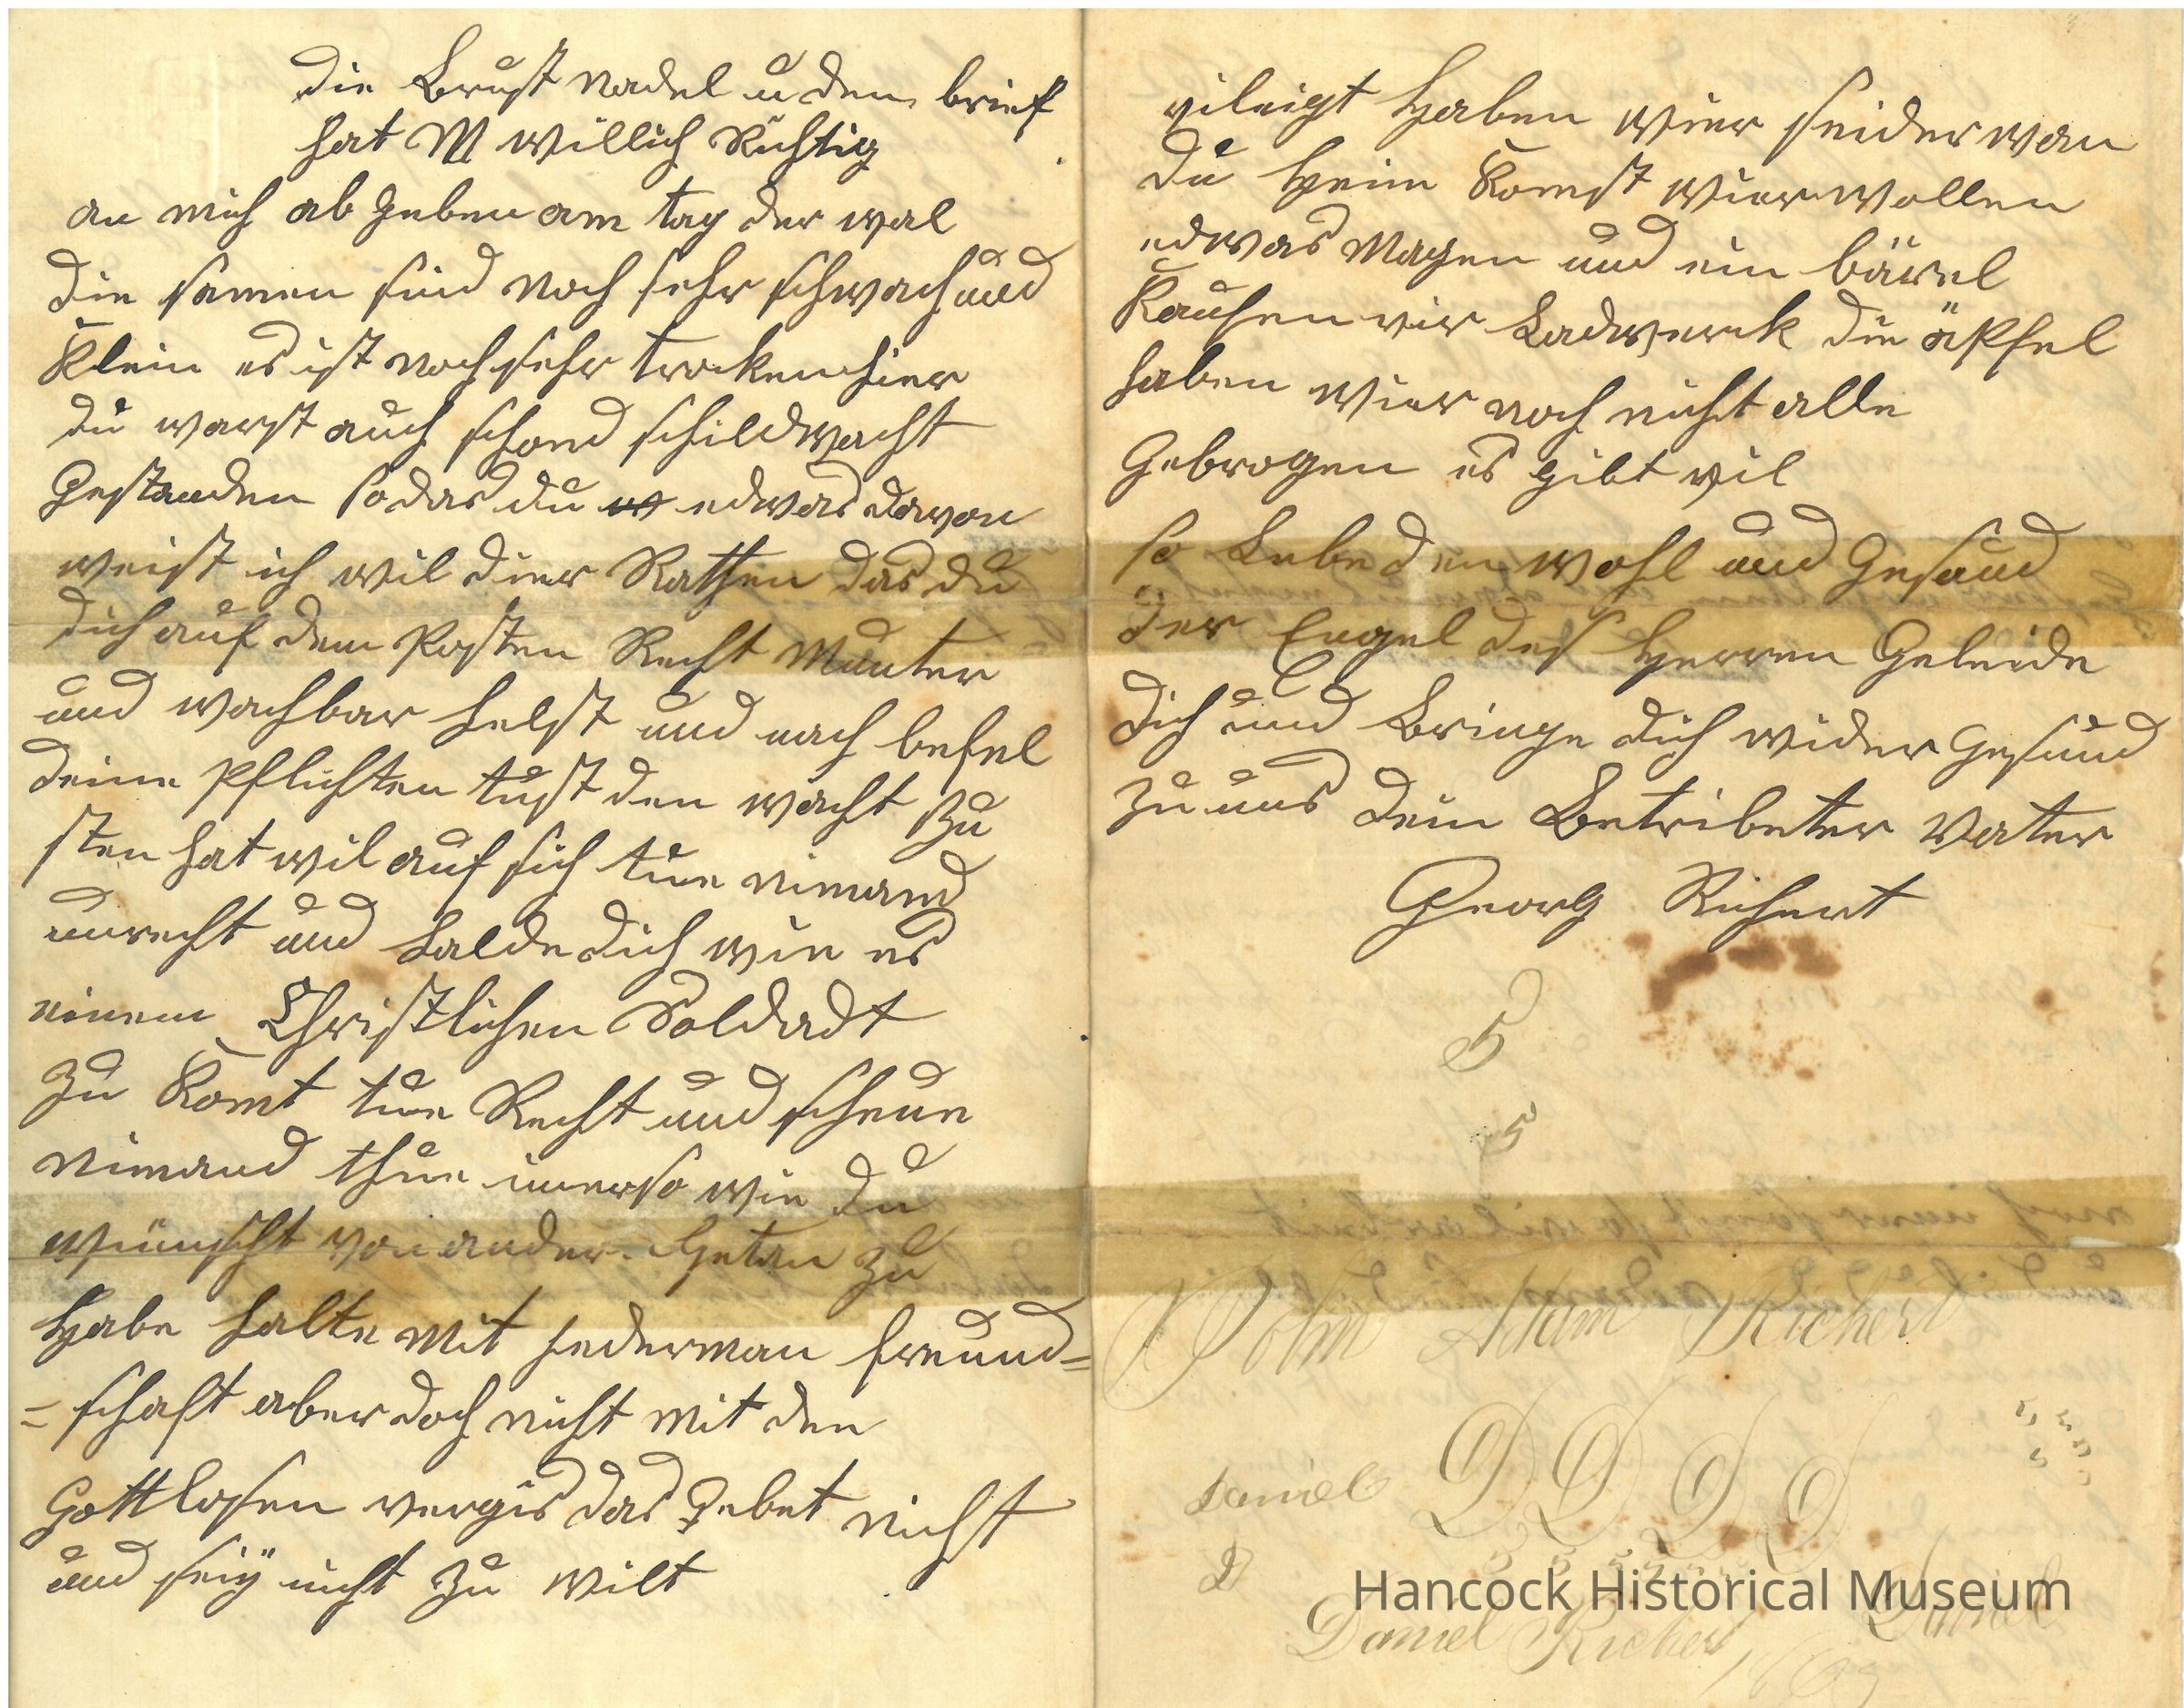 die Brust Nadel u den brief
hat M Willich Richtig
an mich ab geben am tag der wal
die samen sind noch sehr schwach und
Klein es ist noch sehr trocken hier
du warst auch schond schildwacht
Gestanden so das du edwas davon
weist ich wil dier Rathen das du
dich auf dem Posten Recht Munter
und wachbar helst und nach befel
deine Pflichten tust den wacht zu
sten hat vil auf sich tue nimand
unrecht und halde dich wie es
einem Christlichen Soldadt
zu Komt tue Recht und scheue
nimand thue imer so wie du
wünscht von ander Getan zu
Habe halte mit jederman freund=
=schaft aber doch nicht mit den
Gottlosen vergis das Gebet nicht
und seiÿ nicht zu wilt
vileigt Haben wier seider wan
du Heim Komst wier wollen
edwas Magen und ein bärel
Kaufen vir Ladwerck die äPfel
haben wier noch nicht alle
Gebrogen es gibt vil
so Lebe den wohl und Gesund
der Engel des Herren Geleide
dich und Bringe dich wider Gesund
zu uns dein Betribter Vater
Georg Richert
5
5
John Adam Richert
Daniel D D D D
D
Hancock Historical Museum
Daniel Richert Daniel